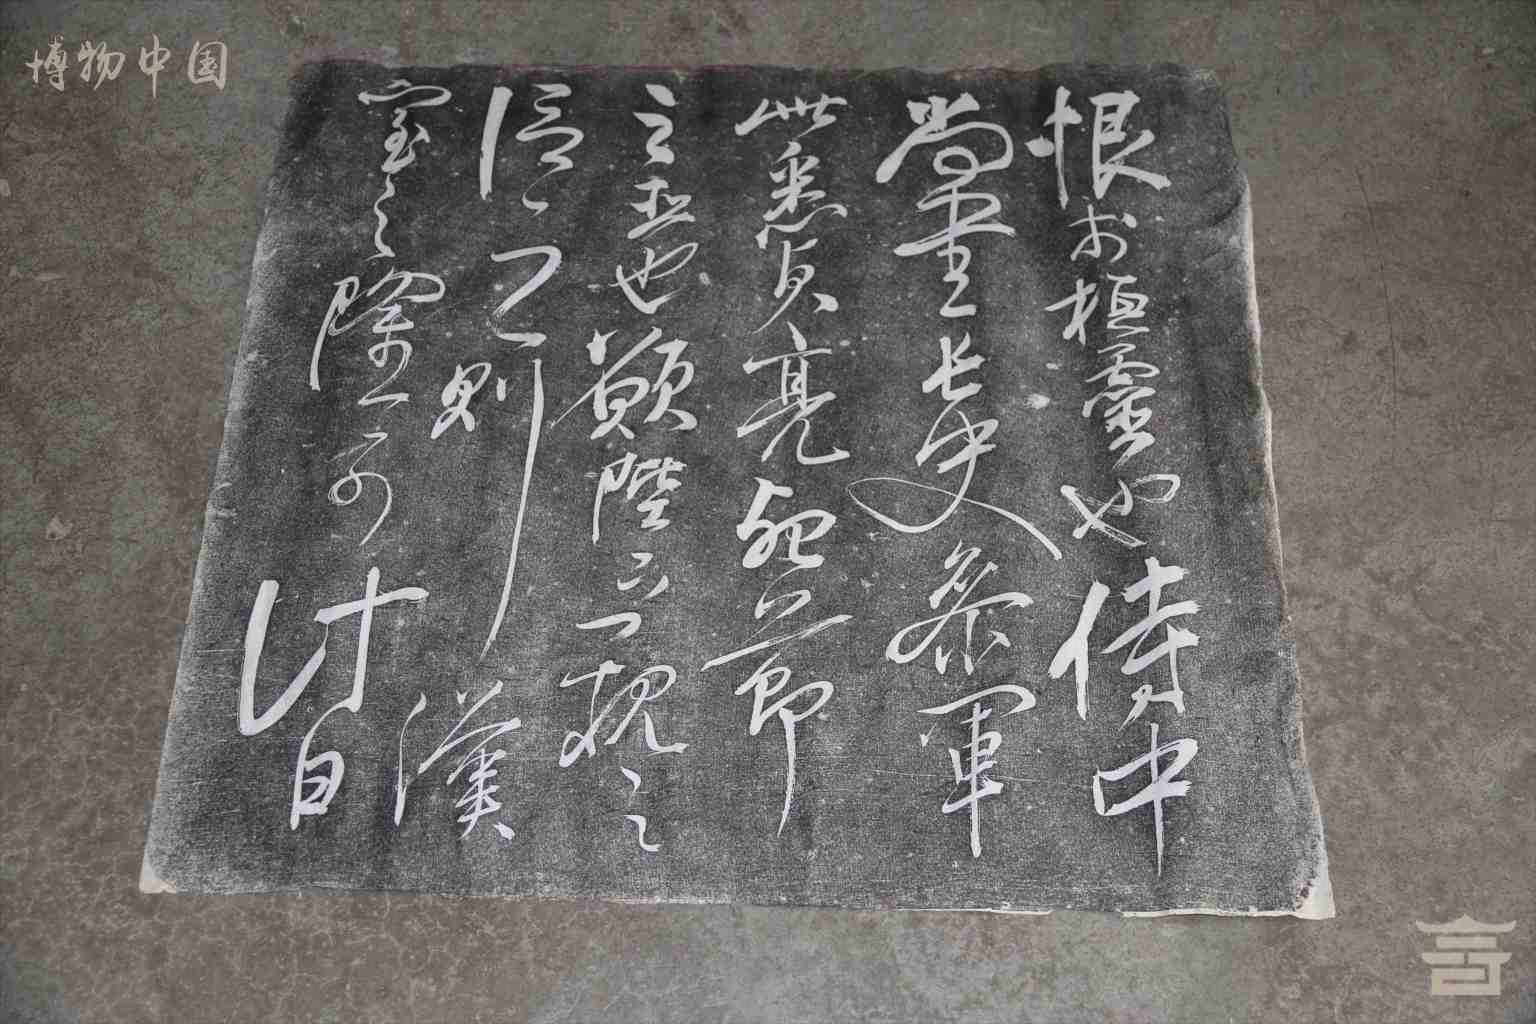 博物中国
恨於桓靈也侍中
尚書長史參軍
此悉貞亮死節
之臣也願陛下親之
信之則漢
室之隆可計日